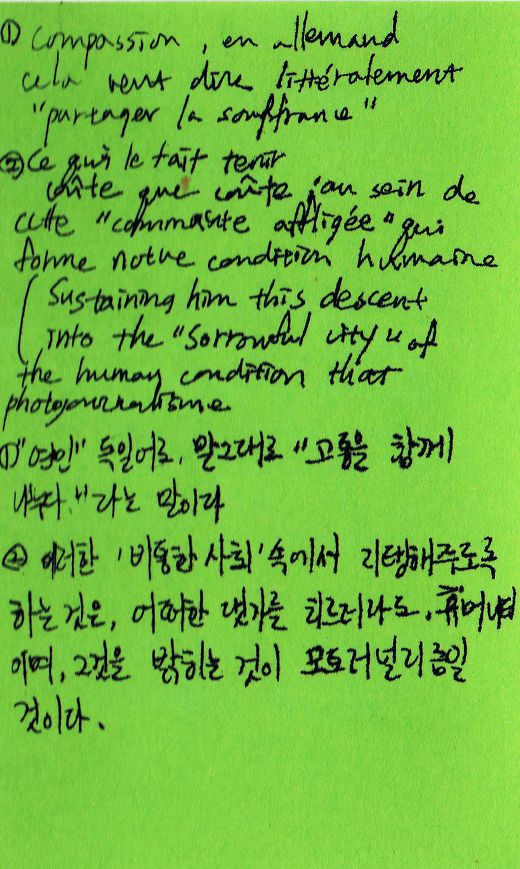 ① Compassion, en allemand
cela veut dire littéralement
"partager la souffrance"
② Ce qui le fait tenir
coûte que coûte, au sein de
cette "commauté affligée" qui
forme notre condition humaine
(Sustaining him this descent
into the "Sorrowful city" of
the human condition that
photojournalisme
① "연민" 독일어로, 말그대로 "고통을 함께
나누다."라는 말이다
② 이러한 '비통한 사회'속에서 지탱해주도록
하는 것은, 어떠한 댓가를 치르더라도, 휴머
이며, 그것을 밝히는 것이 포토저널리즘일
것이다.